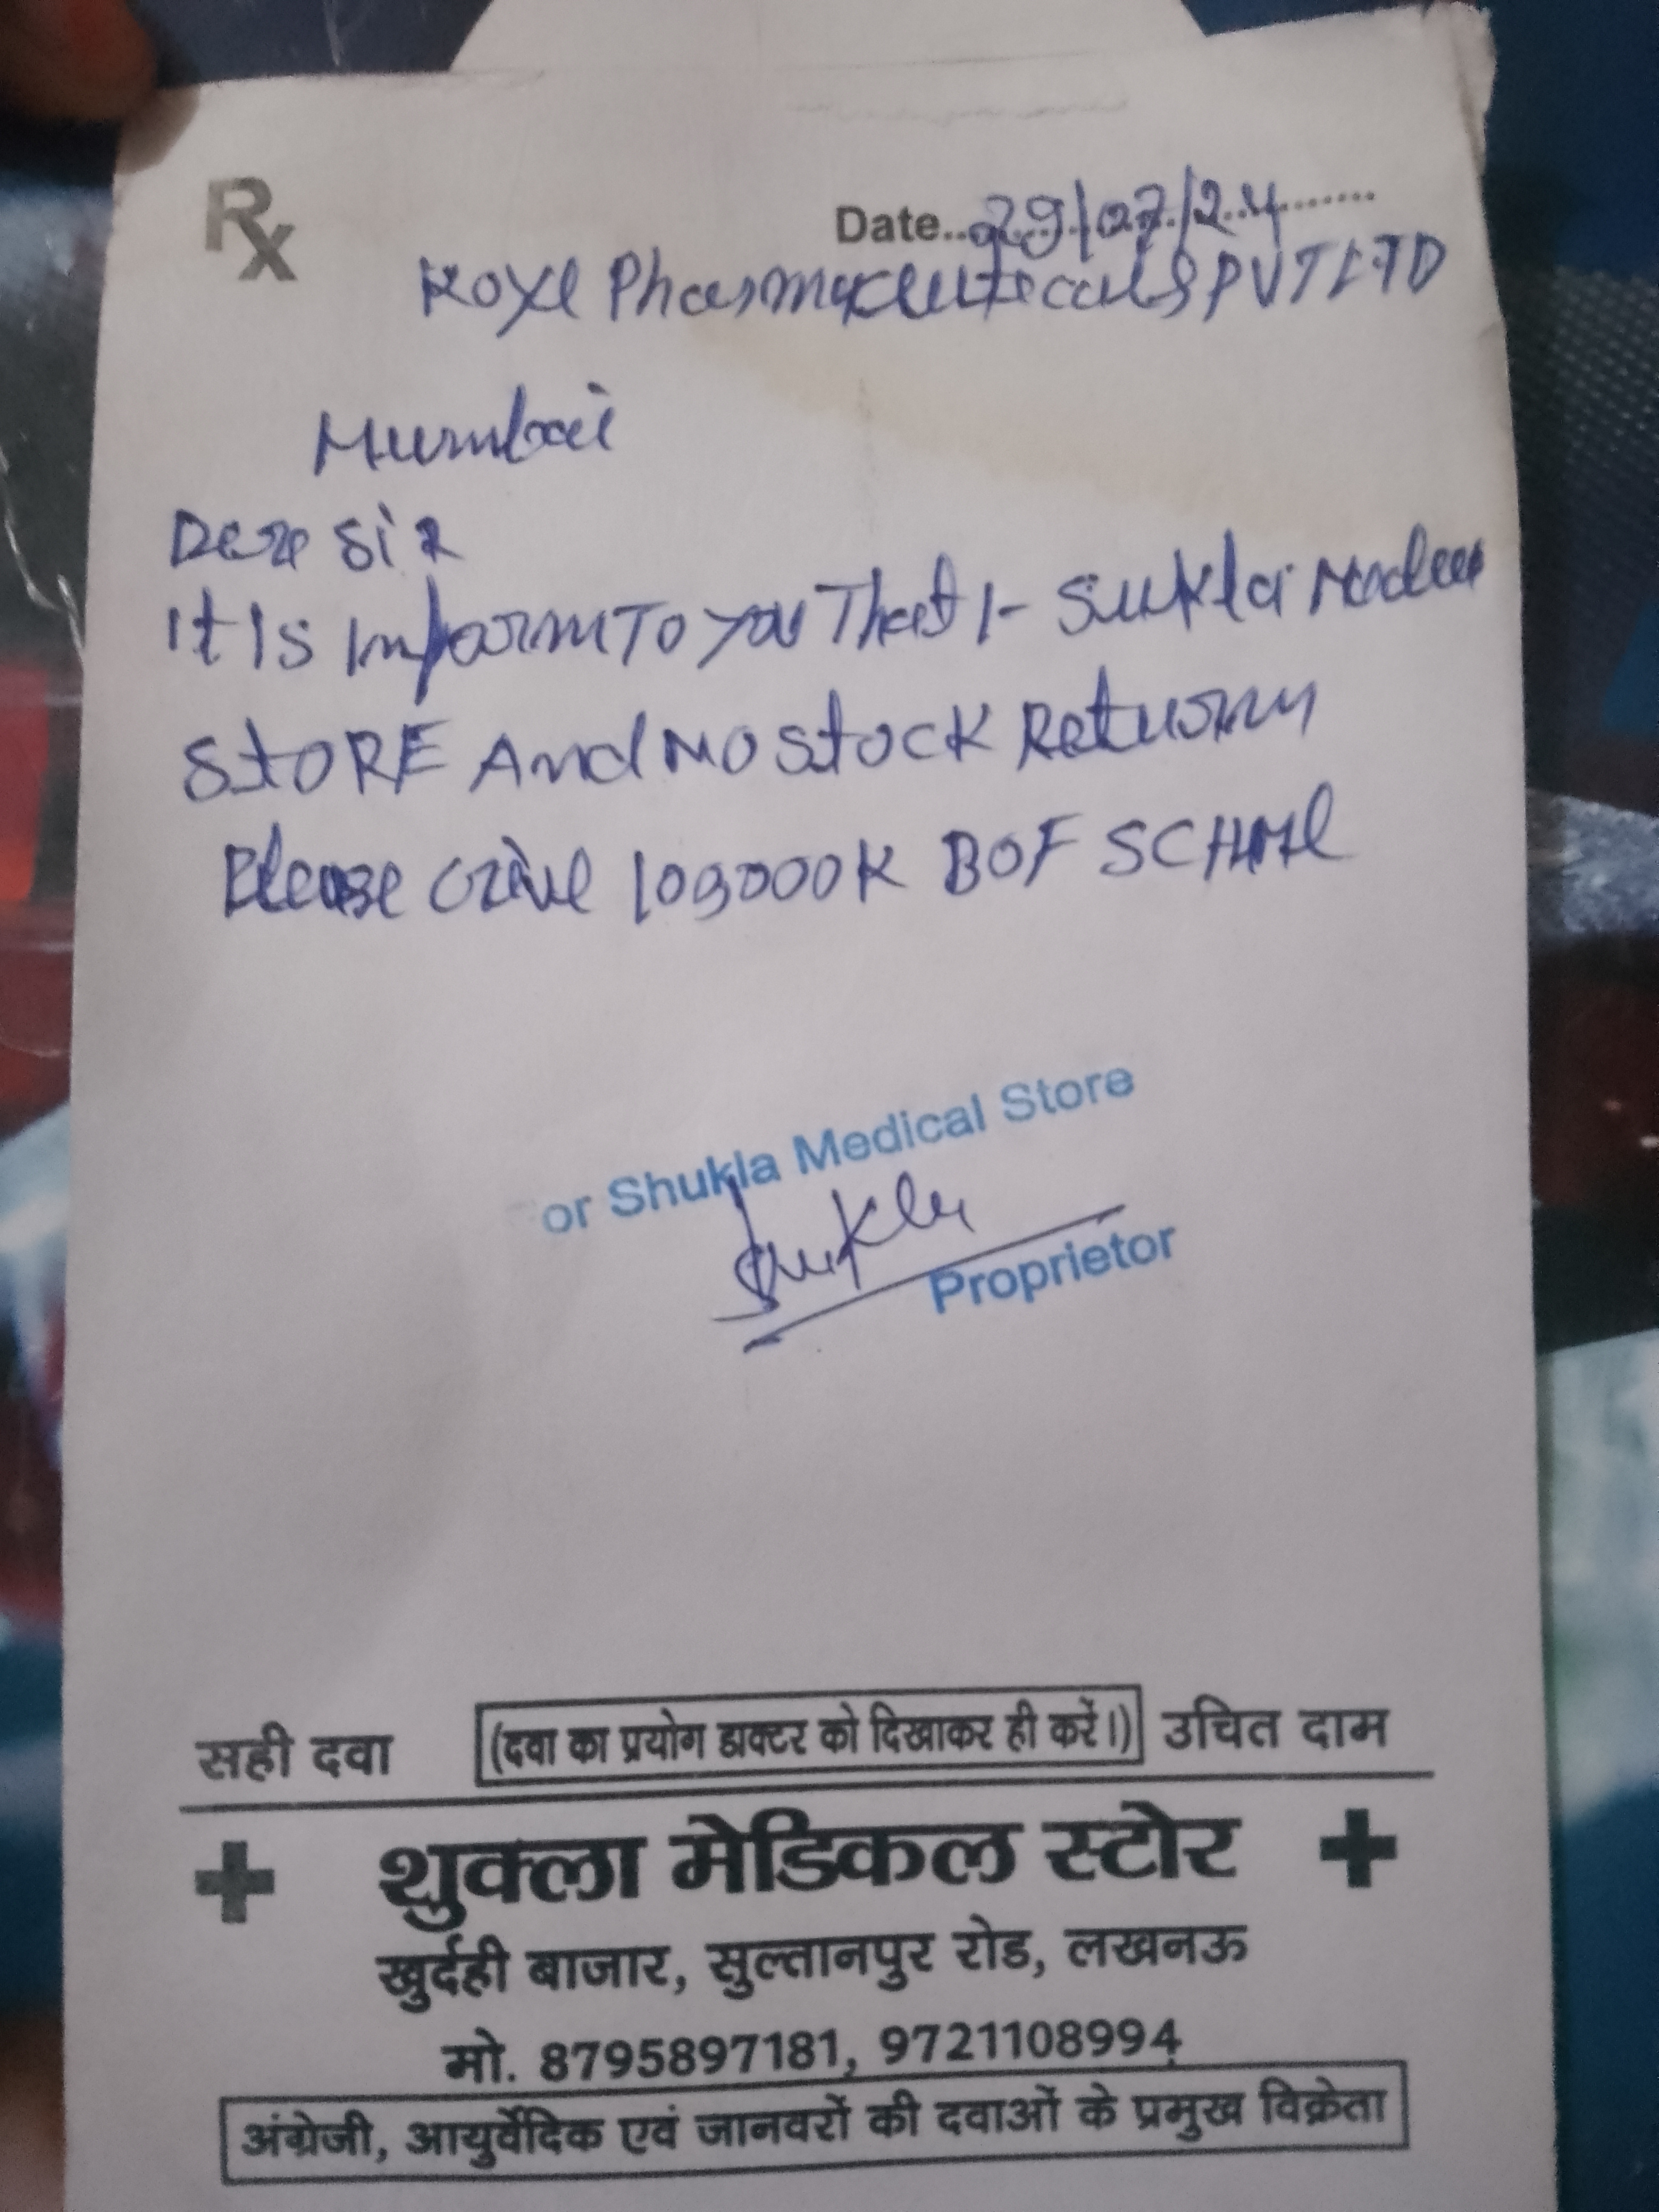 Rx
Date..29/07/24........
Royl Pharmaceuticals PVT LTD
Mumbai
Dear Sir
It Is Inform To you That I- Sukla
STORE And No Stock Return
Please Give 109000K BOF SCHME
or Shukla Medical Store
Shukla
Proprietor
सही दवा (दवा का प्रयोग डाक्टर को दिखाकर ही करें।) उचित दाम
+ शुक्ला मेडिकल स्टोर +
खुर्दही बाजार, सुल्तानपुर रोड, लखनऊ
मो. 8795897181, 9721108994
अंग्रेजी, आयुर्वेदिक एवं जानवरों की दवाओं के प्रमुख विक्रेता